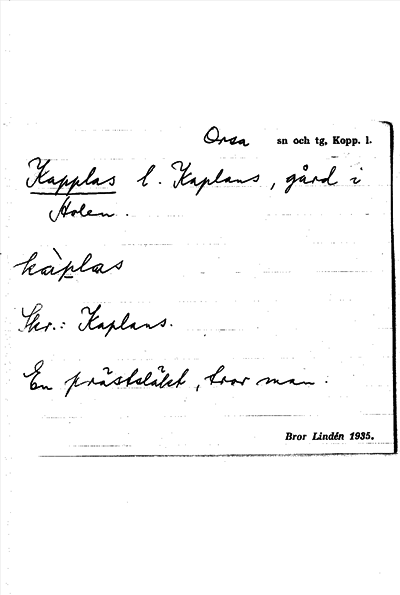 Orsa sn och tg, Kopp. l.
Kapplas l. Kaplans, gård i
Holen.
kàplas
Skr.: Kaplans.
En prästsläkt, tror man.
Bror Lindén 1935.